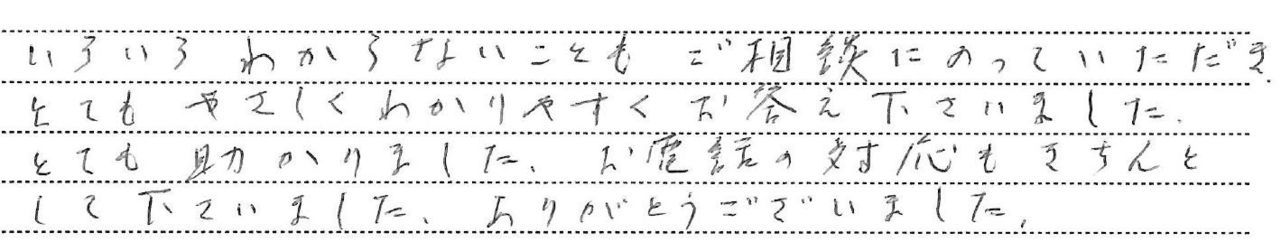 いろいろ わからないことも ご相談にのっていただき、
とても やさしく わかりやすく お答え下さいました。
とても 助かりました。 お電話の対応も きちんと
して下さいました。 ありがとうございました。